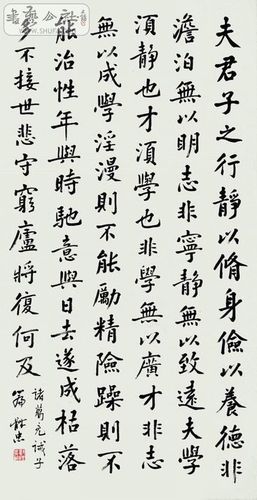 夫君子之行靜以脩身儉以養德非
澹泊無以明志非寧靜無以致遠夫學
須靜也才須學也非學無以廣才非志
無以成學淫漫則不能勵精險躁則不
能治性年與時馳意與日去遂成枯落
多不接世悲守窮廬將復何及
諸葛亮誡子
篇